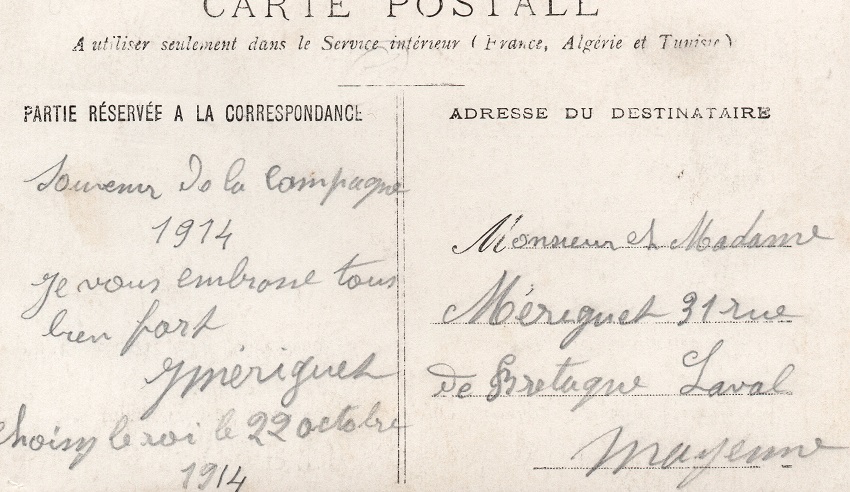 CARTE POSTALE
A utiliser seulement dans le Service intérieur (France, Algérie et Tunisie)
PARTIE RÉSERVÉE A LA CORRESPONDANCE
Souvenir de la Campagne
1914
je vous embrasse tous
bien fort
Mériguet
Choisy le roi le 22 octobre
1914
ADRESSE DU DESTINATAIRE
Monsieur et Madame
Mériguet 31 rue
de Bretagne Laval
Mayenne